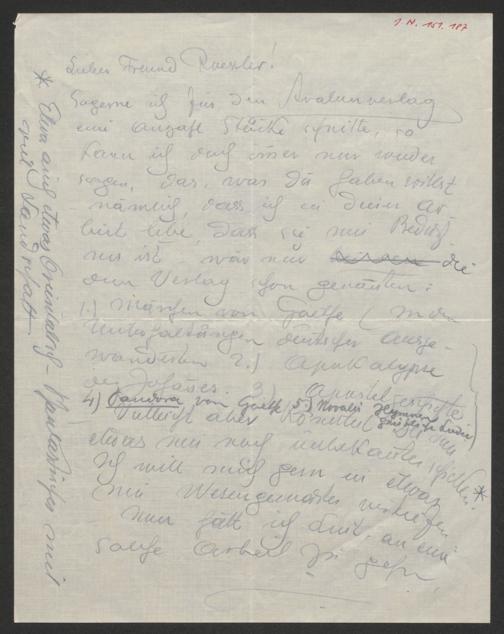 J. N. 151.187
Lieber Freund Roessler!
So gerne ich für den Avalunverlag
eine Anzahl Stücke schnitte, so
kann ich doch immer nur wieder
sagen, das, was Du haben willst
nämlich, dass ich in Deiner Ar-
beit lebe, dass sie mir Bedürf-
nis ist, wär nur die
dem Verlag schon genannten:
1.) Märchen von Goethe (in den
Unterhaltungen deutscher Ausge-
wanderten 2.) Apokalypse
des Johannes. 3) Apostelgeschichte
4) Pandora von Goethe, 5) Novalis Hymnen
geistliche Lieder
Vielleicht aber könntest
etwas mir noch unbekanntes
Ich will mich gern in etwas
mir Wesensverwandtes vertiefen
nur hätt ich Lust, an eine
solche Arbeit zu gehn.
* Etwa auch etwas Orientalisch-Phantastisches mit
viel Landschaft